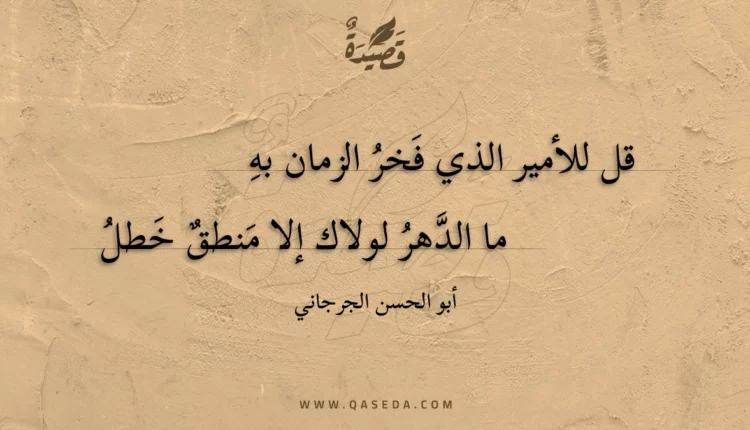 قَصِيدَةٌ
قل للأمير الذي فَخرُ الزمان بهِ
ما الدَّهرُ لولاك إلا مَنطقٌ خَطلُ
أبو الحسن الجرجاني
WWW.QASEDA.COM